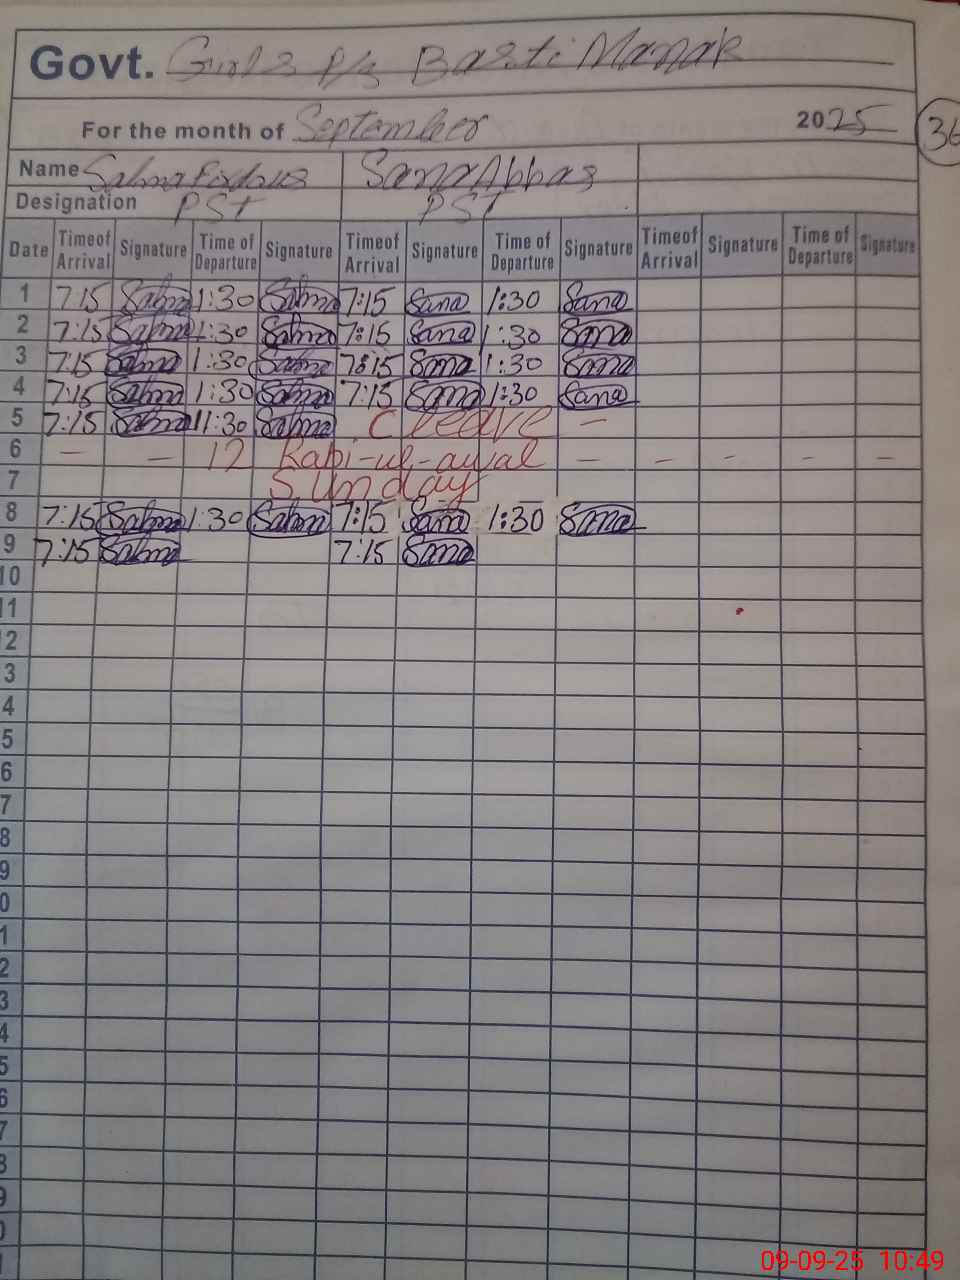 Govt. Girls P/s Basti Manak
For the month of September 2025 36
Name Salma Firdous Sana Abbas
Designation PST PST
Date Timeof Arrival Signature Time of Departure Signature Timeof Arrival Signature Time of Departure Signature Timeof Arrival Signature Time of Departure Signature
1 7:15 Salma 1:30 Salma 7:15 Sana 1:30 Sana
2 7:15 Salma 1:30 Salma 7:15 Sana 1:30 Sana
3 7:15 Salma 1:30 Salma 7:15 Sana 1:30 Sana
4 7:15 Salma 1:30 Salma 7:15 Sana 1:30 Sana
5 7:15 Salma 11:30 Salma C leave –
6 – – 12 Rabi-ul-awal – – – – –
7 Sunday
8 7:15 Salma 1:30 Salma 7:15 Sana 1:30 Sana
9 7:15 Salma 7:15 Sana
10
11
2
3
4
5
6
7
8
9
0
1
2
3
4
5
6
7
8
9
0
1
09-09-25 10:49